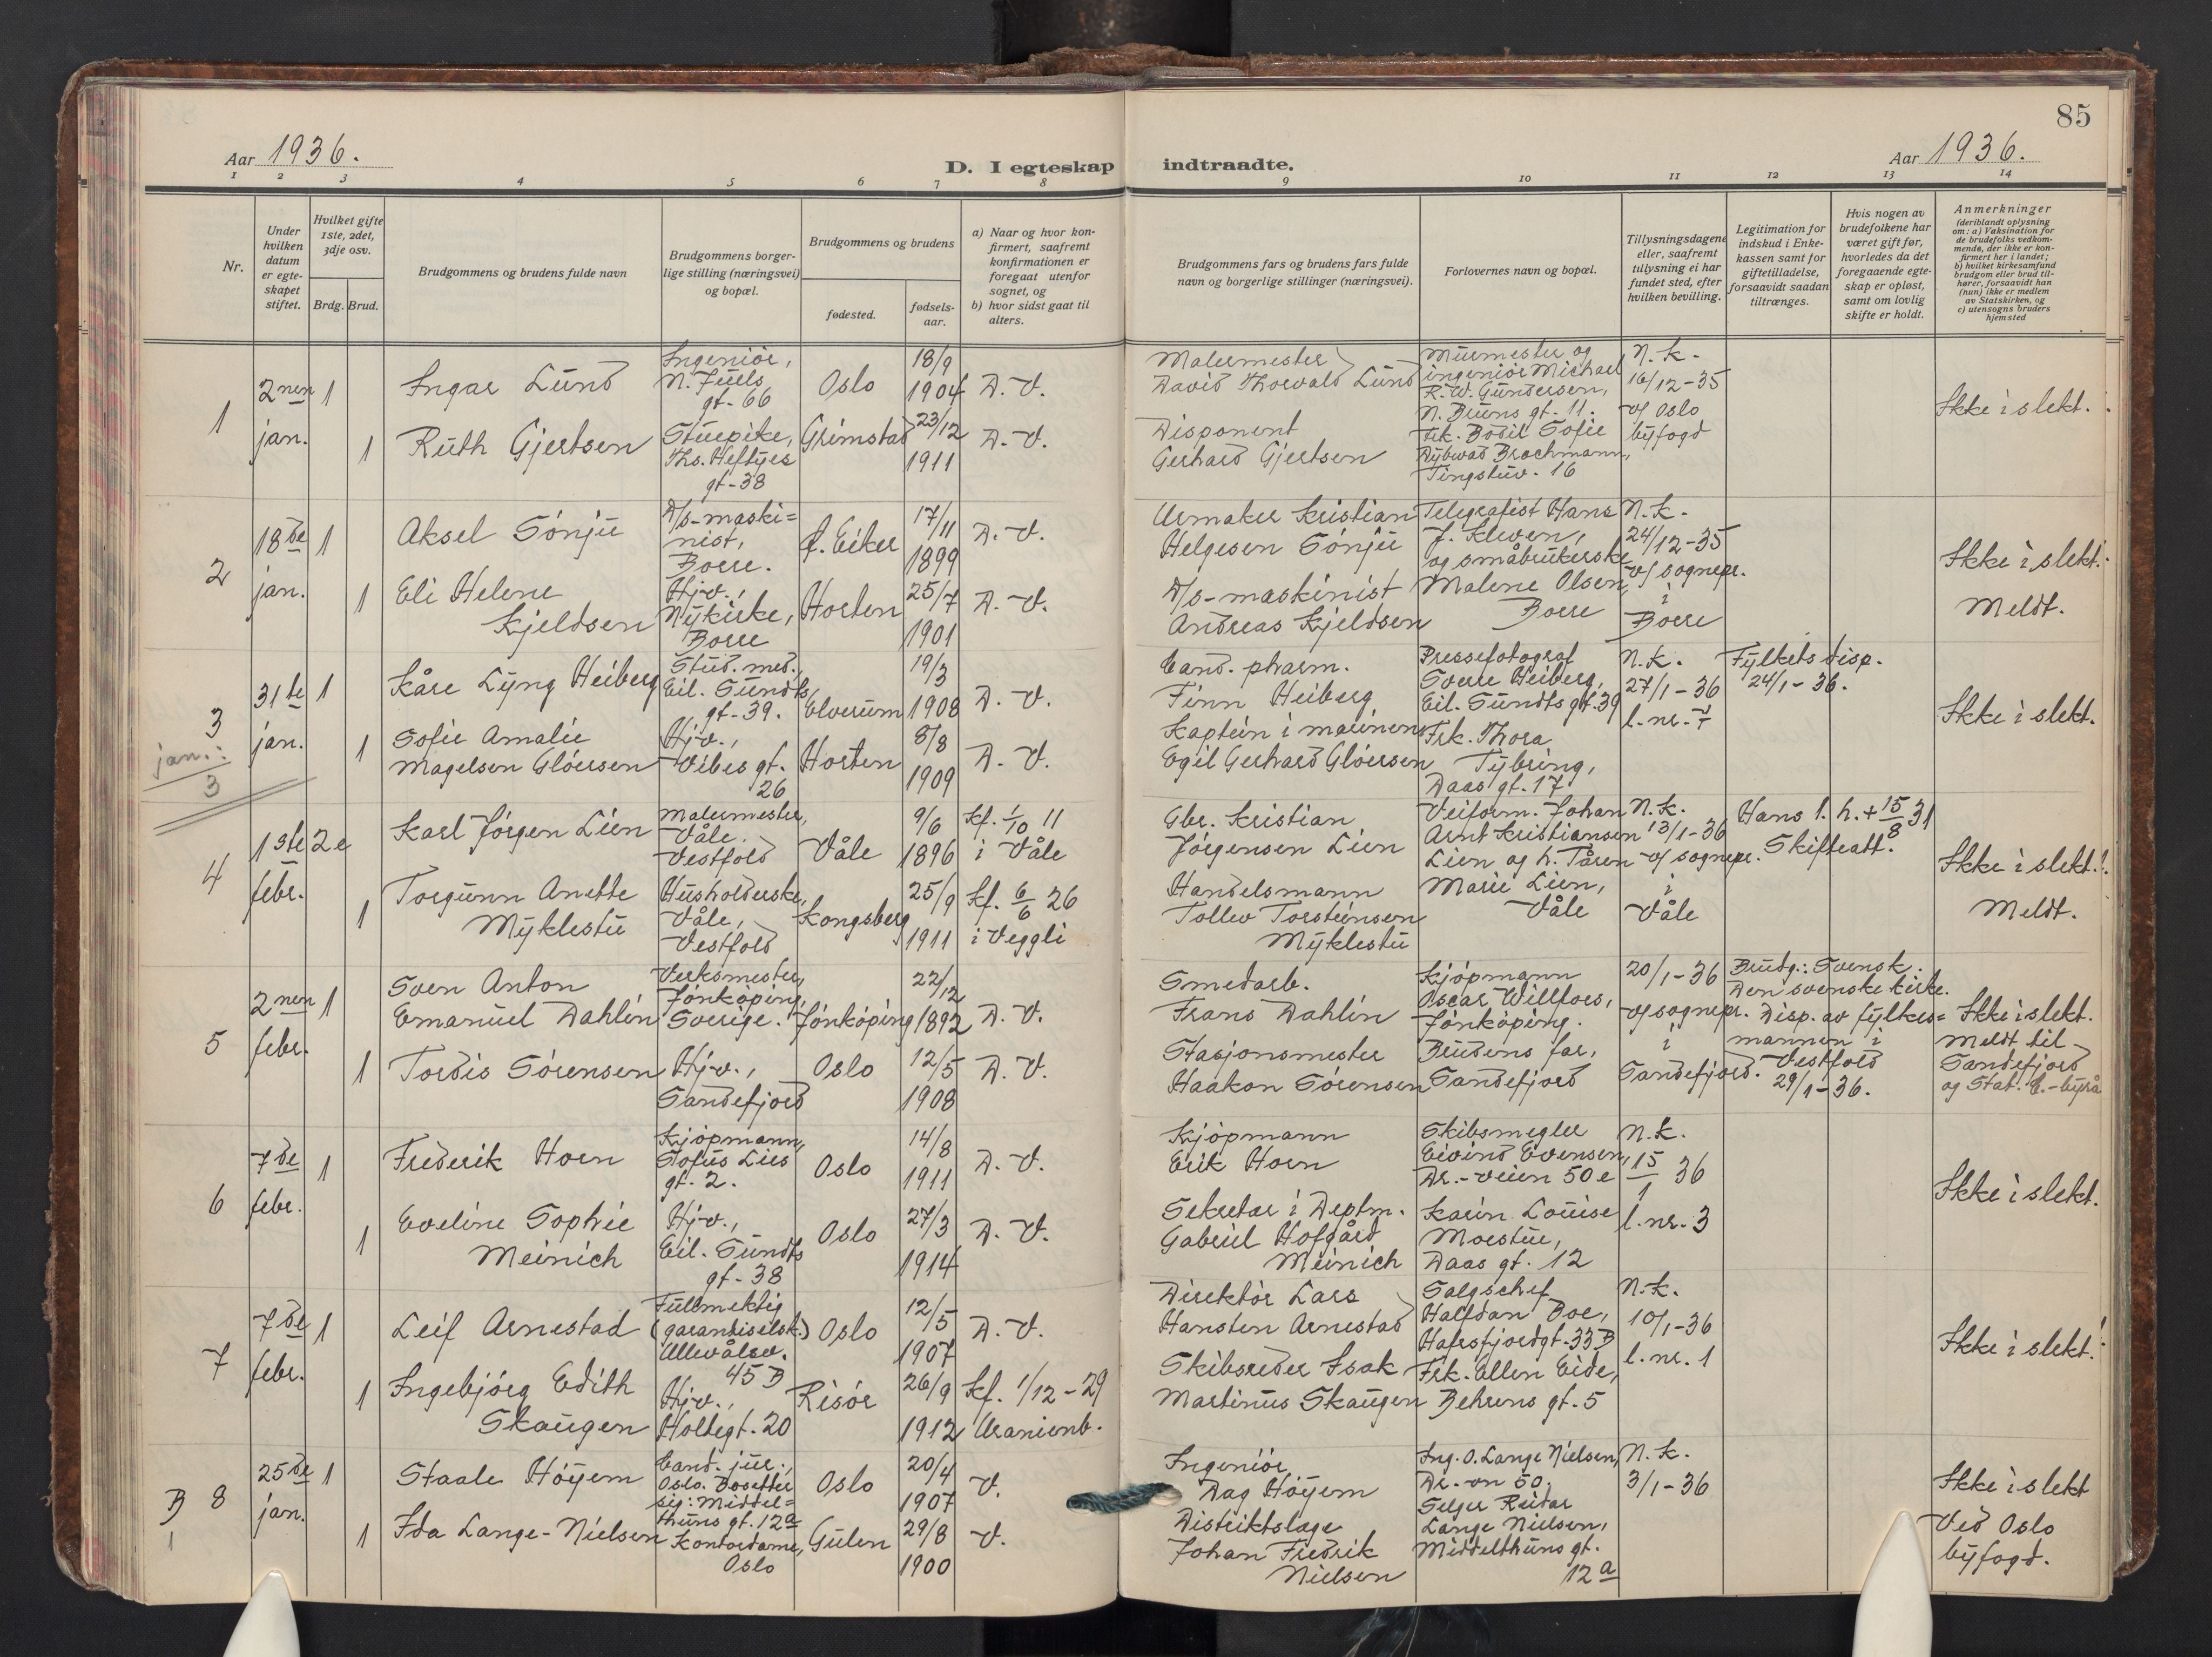 85
Aar 1936.
D. I egteskap indtraadte.
Aar 1936.
1 2 3 4 5 6 7 8 9 10 11 12 13 14
Nr.
Under hvilken datum er egteskapet stiftet.
Hvilket gifte 1ste, 2det, 3dje osv.
Brdg. Brud.
Brudgommens og brudens fulde navn
Brudgommens borgerlige stilling (næringsvei) og bopæl.
Brudgommens og brudens
fødested.
fødselsaar.
a) Naar og hvor konfirmert, saafremt konfirmationen er foregaat utenfor sognet, og
b) hvor sidst gaat til alters.
Brudgommens fars og brudens fars fulde navn og borgerlige stillinger (næringsvei).
Forlovernes navn og bopæl.
Tillysningsdagene eller, saafremt tillysning ei har fundet sted, efter hvilken bevilling.
Legitimation for indskud i Enkekassen samt for giftetilladelse, forsaavidt saadan tiltrænges.
Hvis nogen av brudefolkene har været gift før, hvorledes da det foregaaende egteskap er opløst, samt om lovlig skifte er holdt.
Anmerkninger
(deriblandt oplysning om: a) Vaksination for de brudefolks vedkommende, der ikke er konfirmert her i landet;
b) hvilket kirkesamfund brudgom eller brud tilhører, forsaavidt han (hun) ikke er medlem av Statskirken, og
c) utensogns bruders hjemsted
1
2nen jan.
1
Ingar Lund
Ingeniør, N. Juels gt. 66
Oslo
18/9 1904
D. V.
Malermester David Thorvald Lund
Murmester og ingeniør Michael R. W. Gundersen, N. Bruns gt. 11.
N. K. 16/12-35 v/ Oslo byfogd
Ikke i slekt.
1
Ruth Gjertsen
Stuepike, Ths. Heftyes gt. 38
Grimstad
23/12 1911
D. V.
Disponent Gerhard Gjertsen
Frk. Bodil Sofie Dybwad Brochmann, Tingstuv. 16
2
18de jan.
1
Aksel Sönju
D/s-maskinist, Borre.
Ø. Eiker
17/11 1899
D. V.
Urmaker Kristian Helgesen Sönju
Telegrafist Hans J. Kleven, og småbrukerske Malene Olsen, Borre
N. K. 24/12-35 v/ sognepr. i Borre
Ikke i slekt. Meldt.
1
Eli Helene Kjeldsen
Hjv., Nykirke, Borre
Horten
25/7 1901
D. V.
D/s-maskinist Andreas Kjeldsen
3
31te jan.
1
Kåre Lyng Heiberg
Stud. med., Eil. Sundts gt. 39.
Elverum
19/3 1908
D. V.
Cand. pharm. Finn Heiberg
Pressefotograf Sverre Heiberg, Eil. Sundts gt. 39
N. K. 27/1-36 l. nr. 7
Fylkets disp. 24/1-36.
Ikke i slekt.
1
Sofie Amalie Magelsen Glöersen
Hjv., Vibes gt. 26
Horten
8/8 1909
D. V.
Kaptein i marinen Egil Gerhard Glöersen
Frk. Thora Tybring, Daas gt. 17
jan.: 3
4
1ste febr.
2e
Karl Jörgen Lien
Malermester, Våle, Vestfold
Våle
9/6 1896
Kf. 1/10 11 i Våle
Gbr. Kristian Jörgensen Lien
Veiform. Johan Arnt Kristiansen Lien og h. Tåren Marie Lien, Våle
N. K. 13/1-36 v/ sognepr. i Våle
Hans 1. h. + 15/8 31 Skifteatt.
Ikke i slekt. Meldt.
1
Torgunn Anette Myklestu
Husholderske, Våle, Vestfold
Kongsberg
25/9 1911
Kf. 6/6 26 i Veggli
Handelsmann Tollev Torsteinsen Myklestu
5
2nen febr.
1
Sven Anton Emanuel Dahlin
Verksmester, Jönköping, Sverige.
Jönköping
22/12 1892
D. V.
Smedarb. Frans Dahlin
Kjöpmann Oscar Willfors, Jönköping.
20/1-36 v/ sognepr. i Sandefjord.
Brudg.: Svensk. Den svenske kirke. Disp. av fylkesmannen i Vestfold 29/1-36.
Ikke i slekt. Meldt til Sandefjord og Stat. C.-byrå
1
Tordis Sörensen
Hjv., Sandefjord
Oslo
12/5 1908
D. V.
Stasjonsmester Haakon Sörensen
Brudens far, Sandefjord
6
7de febr.
1
Frederik Horn
Kjöpmann, Sofus Lies gt. 2.
Oslo
14/8 1911
D. V.
Kjöpmann Erik Horn
Skibsmegler Eivind Evensen, Dr.-veien 50 e
N. K. 15/1 36 l. nr. 3
Ikke i slekt.
1
Eveline Sophie Meinich
Hjv., Eil. Sundts gt. 38
Oslo
27/3 1914
D. V.
Sekretær i Deptm. Gabriel Hofgård Meinich
Karin Louise Morstue, Daas gt. 12
7
7de febr.
1
Leif Arnestad
Fullmektig (garantiselsk.) Ullevålsv. 45 B
Oslo
12/5 1907
D. V.
Direktör Lars Hansten Arnestad
Salgschef Halfdan Boe, Hafrsfjordgt. 33 B
N. K. 10/1-36 l. nr. 1
Ikke i slekt.
1
Ingebjörg Edith Skaugen
Hjv., Holtegt. 20
Risör
26/9 1912
Kf. 1/12-29 Uranienb.
Skibsreder Isak Martinius Skaugen
Frk. Ellen Eide, Behrens gt. 5
B 1
8
25de jan.
1
Staale Höyem
Cand. jur., Oslo. Bosetter sig: Middelthuns gt. 12a
Oslo
20/4 1907
V.
Ingeniör Dag Höyem
Ing. O. Lange Nielsen, Dr.-vn 50.
N. K. 3/1-36
Ikke i slekt Ved Oslo byfogd.
1
Ida Lange-Nielsen
Kontordame, Oslo
Gulen
29/8 1900
V.
Distriktslæge Johan Fredrik Nielsen
Selger Reidar Lange Nielsen, Middelthuns gt. 12a